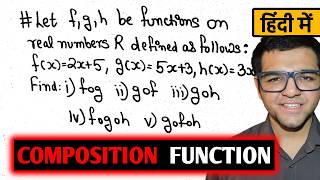 # Let f, g, h be functions on
real numbers R defined as follows:
f(x)=2x+5, g(x)=5x+3, h(x)=3x
Find: i) fog ii) gof iii) goh
iv) fogoh v) gofoh
हिंदी में
COMPOSITION FUNCTION